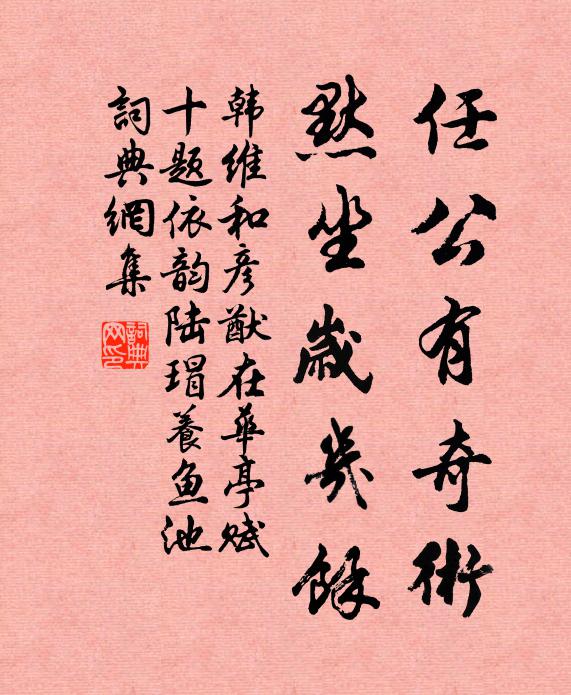 任公有奇術
默坐歲幾餘
韩維和彦猷在華亭赋
十题依韵陆瑁養鱼池
詞典網集
詞典网印